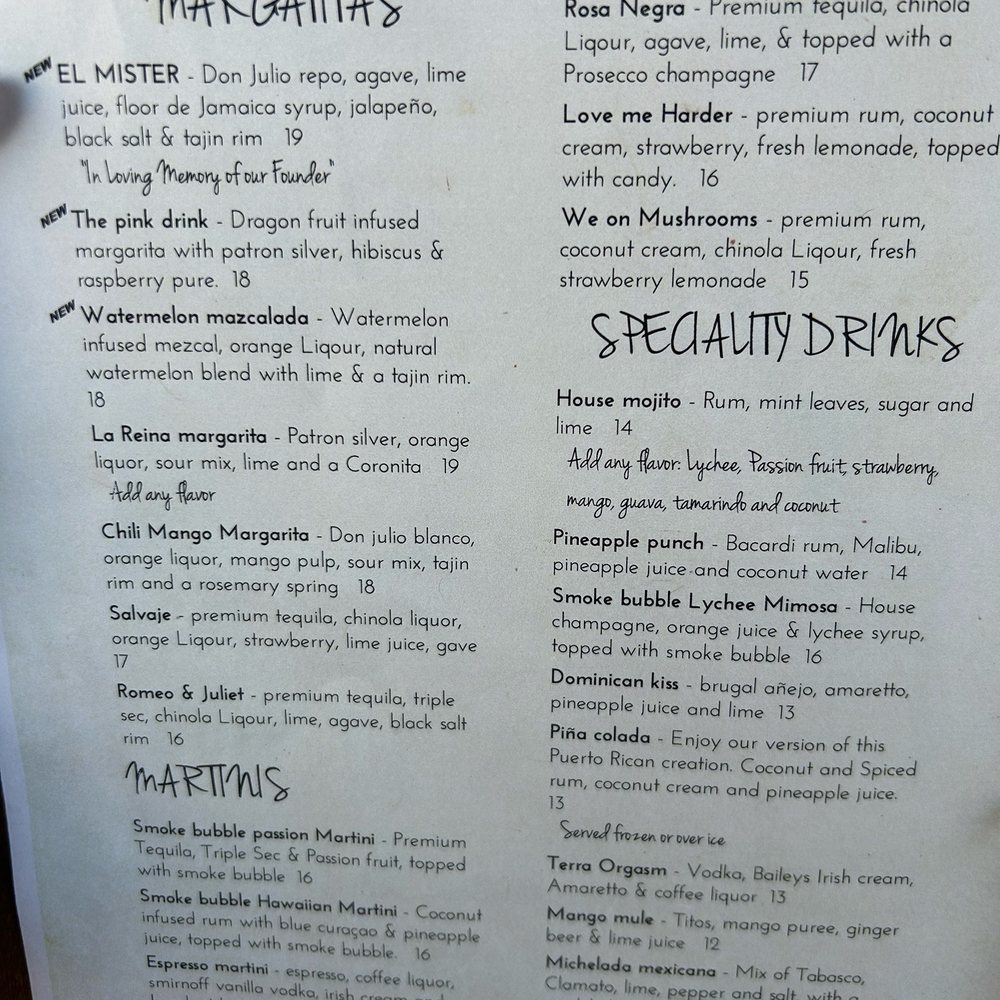 MARGARITAS
NEW EL MISTER - Don Julio repo, agave, lime
juice, floor de Jamaica syrup, jalapeño,
black salt & tajin rim 19
"In Loving Memory of our Founder"
NEW The pink drink - Dragon fruit infused
margarita with patron silver, hibiscus &
raspberry pure. 18
NEW Watermelon mazcalada - Watermelon
infused mezcal, orange Liqour, natural
watermelon blend with lime & a tajin rim.
18
La Reina margarita - Patron silver, orange
liquor, sour mix, lime and a Coronita 19
Add any flavor
Chili Mango Margarita - Don julio blanco,
orange liquor, mango pulp, sour mix, tajin
rim and a rosemary spring 18
Salvaje - premium tequila, chinola liquor,
orange Liqour, strawberry, lime juice, gave
17
Romeo & Juliet - premium tequila, triple
sec, chinola Liqour, lime, agave, black salt
rim 16
MARTINIS
Smoke bubble passion Martini - Premium
Tequila, Triple Sec & Passion fruit, topped
with smoke bubble 16
Smoke bubble Hawaiian Martini - Coconut
infused rum with blue curaçao & pineapple
juice, topped with smoke bubble. 16
Espresso martini - espresso, coffee liquor,
smirnoff vanilla vodka, irish cream and
Rosa Negra - Premium tequila, chinola
Liqour, agave, lime, & topped with a
Prosecco champagne 17
Love me Harder - premium rum, coconut
cream, strawberry, fresh lemonade, topped
with candy. 16
We on Mushrooms - premium rum,
coconut cream, chinola Liqour, fresh
strawberry lemonade 15
SPECIALITY DRINKS
House mojito - Rum, mint leaves, sugar and
lime 14
Add any flavor: Lychee, Passion fruit, strawberry,
mango, guava, tamarindo and coconut
Pineapple punch - Bacardi rum, Malibu,
pineapple juice and coconut water 14
Smoke bubble Lychee Mimosa - House
champagne, orange juice & lychee syrup,
topped with smoke bubble 16
Dominican kiss - brugal añejo, amaretto,
pineapple juice and lime 13
Piña colada - Enjoy our version of this
Puerto Rican creation. Coconut and Spiced
rum, coconut cream and pineapple juice.
13
Served frozen or over ice
Terra Orgasm - Vodka, Baileys Irish cream,
Amaretto & coffee liquor 13
Mango mule - Titos, mango puree, ginger
beer & lime juice 12
Michelada mexicana - Mix of Tabasco,
Clamato, lime, pepper and salt, with a